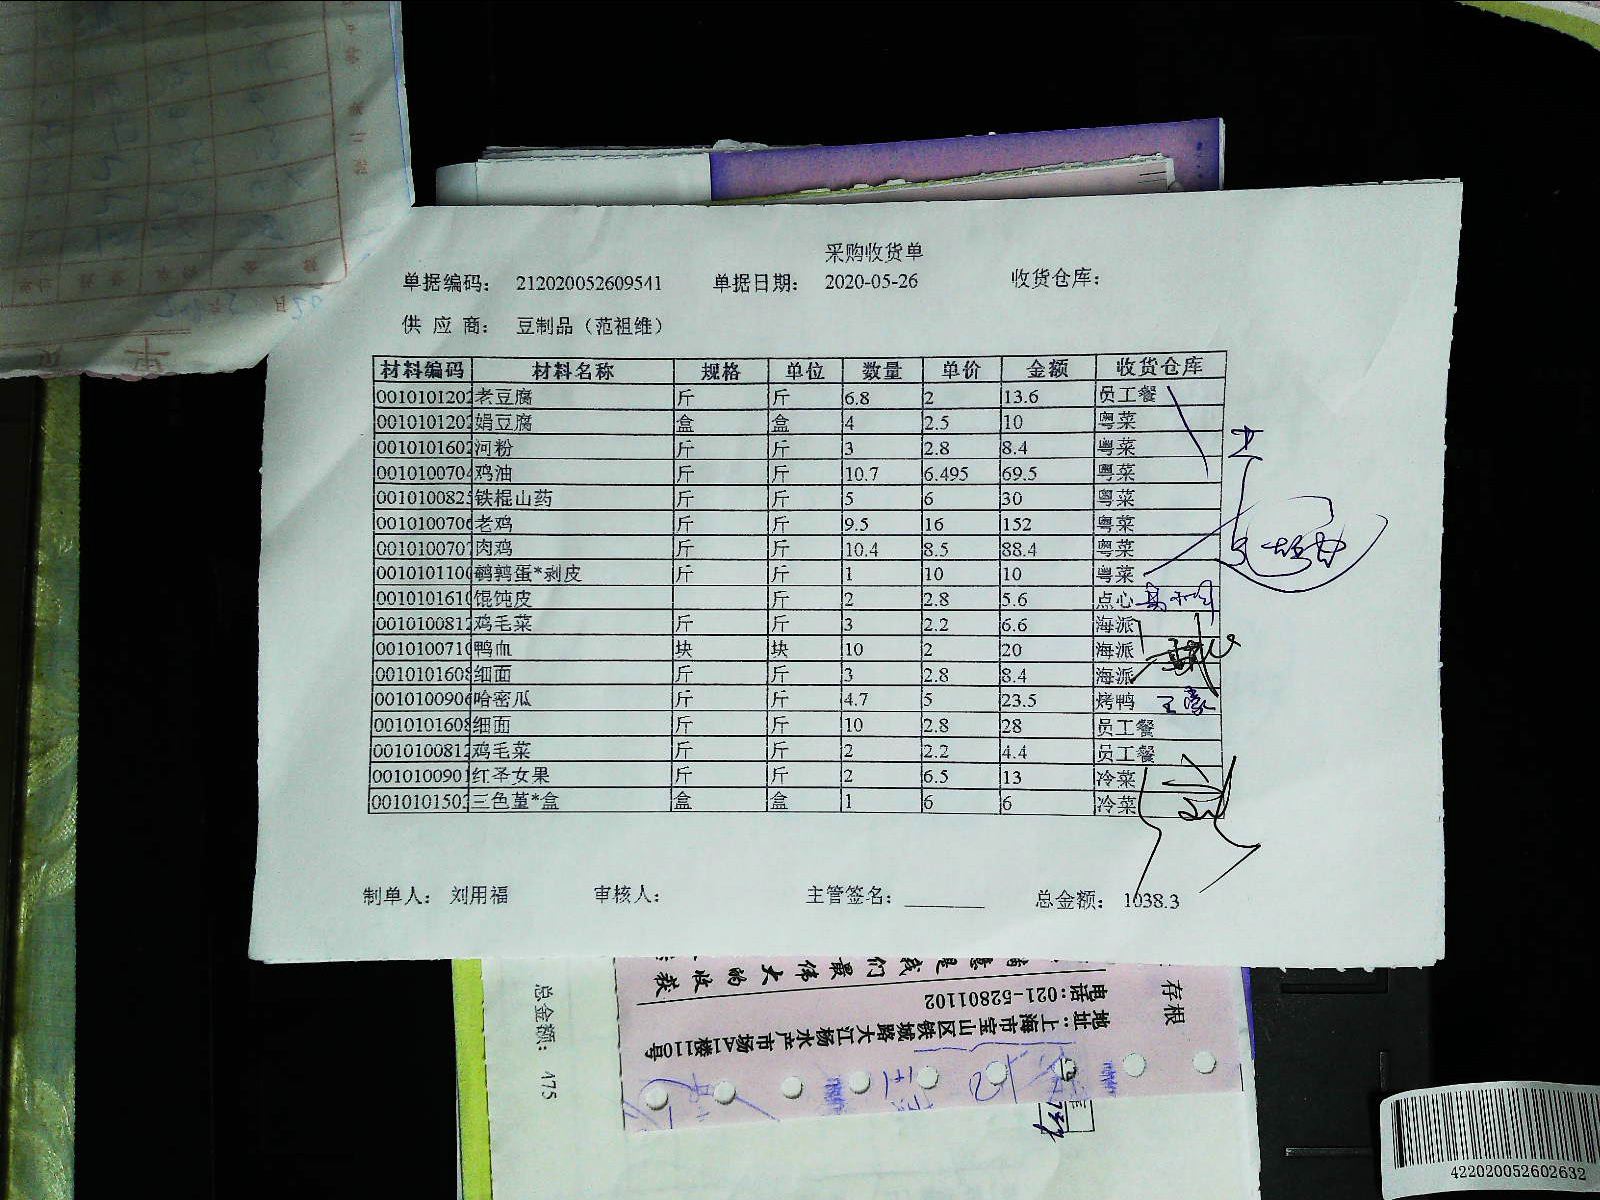 采购收货单
单据编码： 212020052609541 单据日期： 2020-05-26 收货仓库：
供 应 商： 豆制品（范祖维）
材料编码 材料名称 规格 单位 数量 单价 金额 收货仓库
0010101202 老豆腐 斤 斤 6.8 2 13.6 员工餐
0010101202 娟豆腐 盒 盒 4 2.5 10 粤菜
0010101602 河粉 斤 斤 3 2.8 8.4 粤菜
0010100704 鸡油 斤 斤 10.7 6.495 69.5 粤菜
0010100825 铁棍山药 斤 斤 5 6 30 粤菜
0010100706 老鸡 斤 斤 9.5 16 152 粤菜
0010100707 肉鸡 斤 斤 10.4 8.5 88.4 粤菜
0010101100 鹌鹑蛋*剥皮 斤 斤 1 10 10 粤菜
0010101610 馄饨皮 斤 2 2.8 5.6 点心
0010100812 鸡毛菜 斤 斤 3 2.2 6.6 海派
0010100710 鸭血 块 块 10 2 20 海派
0010101608 细面 斤 斤 3 2.8 8.4 海派
0010100906 哈密瓜 斤 斤 4.7 5 23.5 烤鸭
0010101608 细面 斤 斤 10 2.8 28 员工餐
0010100812 鸡毛菜 斤 斤 2 2.2 4.4 员工餐
0010100901 红圣女果 斤 斤 2 6.5 13 冷菜
0010101502 三色堇*盒 盒 盒 1 6 6 冷菜
制单人： 刘用福 审核人： 主管签名： 总金额： 1038.3
是我们最伟大的收获
电话:021-52801102
地址:上海市宝山区铁城路大江杨水产市场A1楼110号
存根
总金额： 475
422020052602632